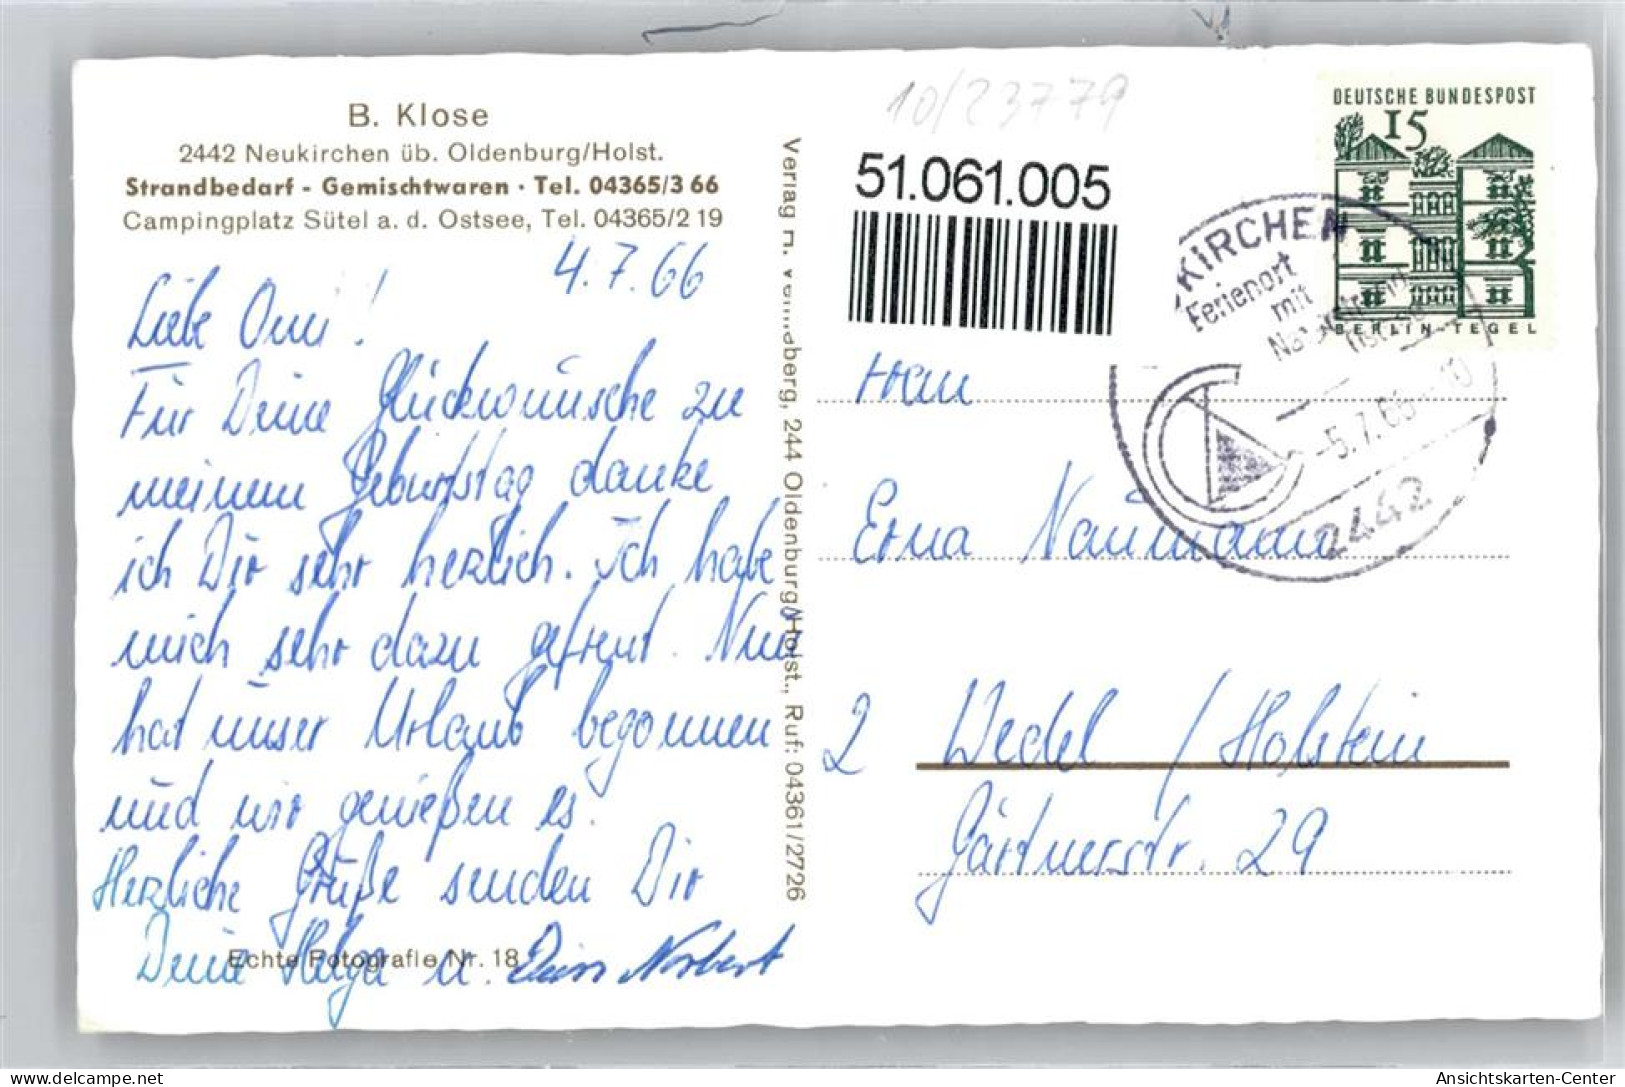 B. Klose
2442 Neukirchen üb. Oldenburg/Holst.
Strandbedarf - Gemischtwaren · Tel. 04365/3 66
Campingplatz Sütel a. d. Ostsee, Tel. 04365/2 19
4.7.66
Liebe Omi!
Für Deine Glückwünsche zu
meinem Geburtstag danke
ich Dir sehr herzlich. Ich habe
mich sehr dazu gefreut. Nun
hat unser Urlaub begonnen
und wir genießen es.
Herzliche Grüße senden Dir
Deine Helga u. Dein Norbert
Echte Fotografie Nr. 18
Verlag H. 244 Oldenburg/Holst., Ruf: 04361/2726
10/23779
51.061.005
DEUTSCHE BUNDESPOST
15
BERLIN-TEGEL
KIRCHEN
Ferienort
mit
-5.7.66-10
2442
Frau
Erna Naumann
2 Wedel / Holstein
Gärtnerstr. 29
delcampe.net
Ansichtskarten-Center